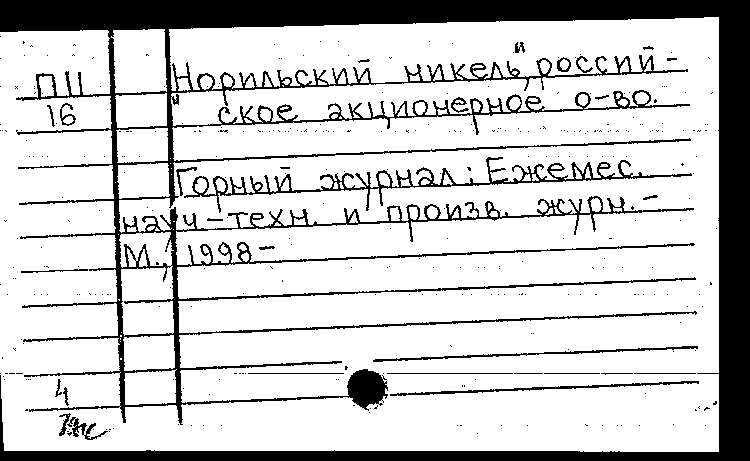 ПII
16
"Норильский никель", россий-
ское акционерное о-во.
Горный журнал: Ежемес.
науч-техн. и произв. журн.-
М., 1998-
4